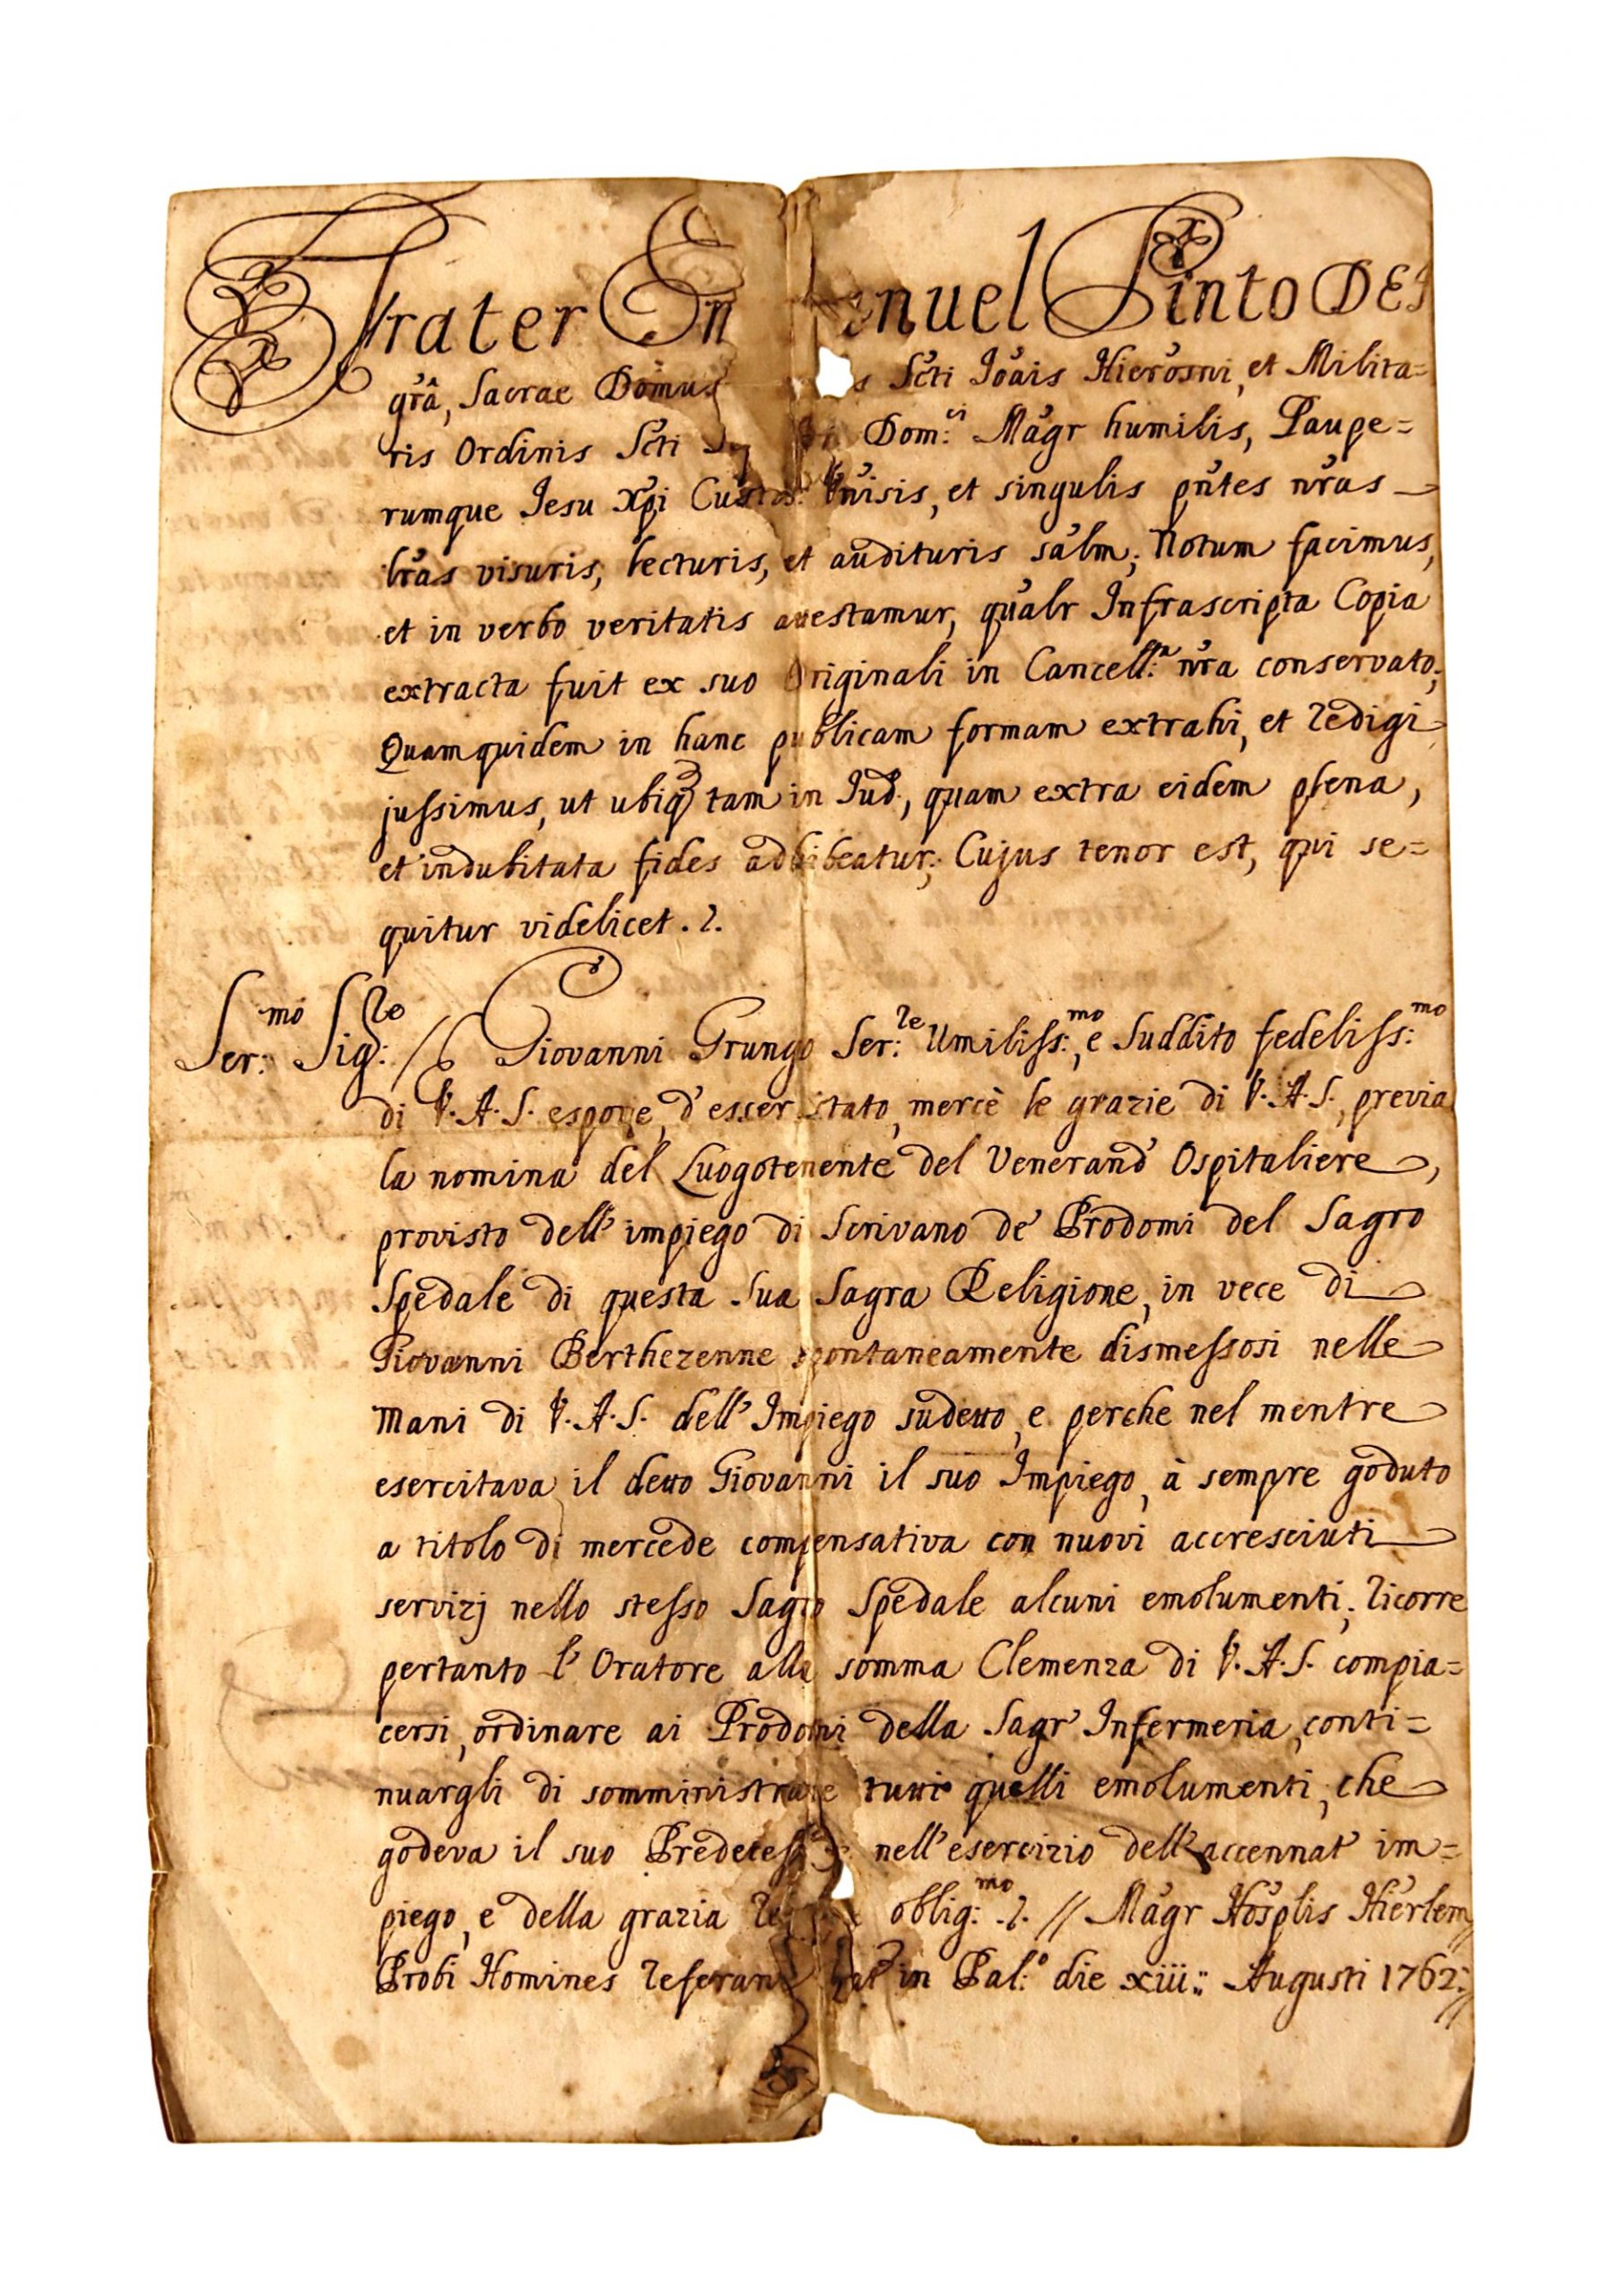 Frater Em  nuel Pinto DEI
grâ, Sacrae Domus  s Scti Joais Hierosni, et Milita=
ris Ordinis Scti  Dom:ci Magr humilis, Paupe=
rumque Jesu Xpi Custos. Vnisis, et singulis pntes nras
lras visuris, lecturis, et audituris salm; Notum facimus,
et in verbo veritatis attestamur, qualr Infrascripta Copia
extracta fuit ex suo Originali in Cancell:a nra conservato;
Quamquidem in hanc publicam formam extrahi, et redigi
jussimus, ut ubiq tam in Jud., quam extra eidem plena,
et indubitata fides adhibeatur; Cujus tenor est, qui se=
quitur videlicet .2.
Ser:mo Sig:re // Giovanni Grungo Ser:re Umiliss:mo, e Suddito fedeliss:mo
di V.A.S. espone, d'esser stato, mercè le grazie di V.A.S., previa
la nomina del Luogotenente del Venerand' Ospitaliere,
provisto dell' impiego di Scrivano de' Prodomi del Sagro
Spedale di questa Sua Sagra Religione, in vece di
Giovanni Berthezenne spontaneamente dismessosi nelle
Mani di V.A.S. dell' Impiego sudetto, e perche nel mentre
esercitava il detto Giovanni il suo Impiego, à sempre goduto
a titolo di mercede compensativa con nuovi accresciuti
servizj nello stesso Sagro Spedale alcuni emolumenti; ricorre
pertanto l' Oratore alla somma Clemenza di V.A.S. compia=
cersi, ordinare ai Prodomi della Sagr' Infermeria, conti=
nuargli di somministrare tutti quelli emolumenti, che
godeva il suo nell' esercizio dell' accennat' im=
piego, e della grazia oblig:mo .2. // Magr Hosplis Hierlem
Probi Homines in Pal:o die xiii:: Augusti 1762://